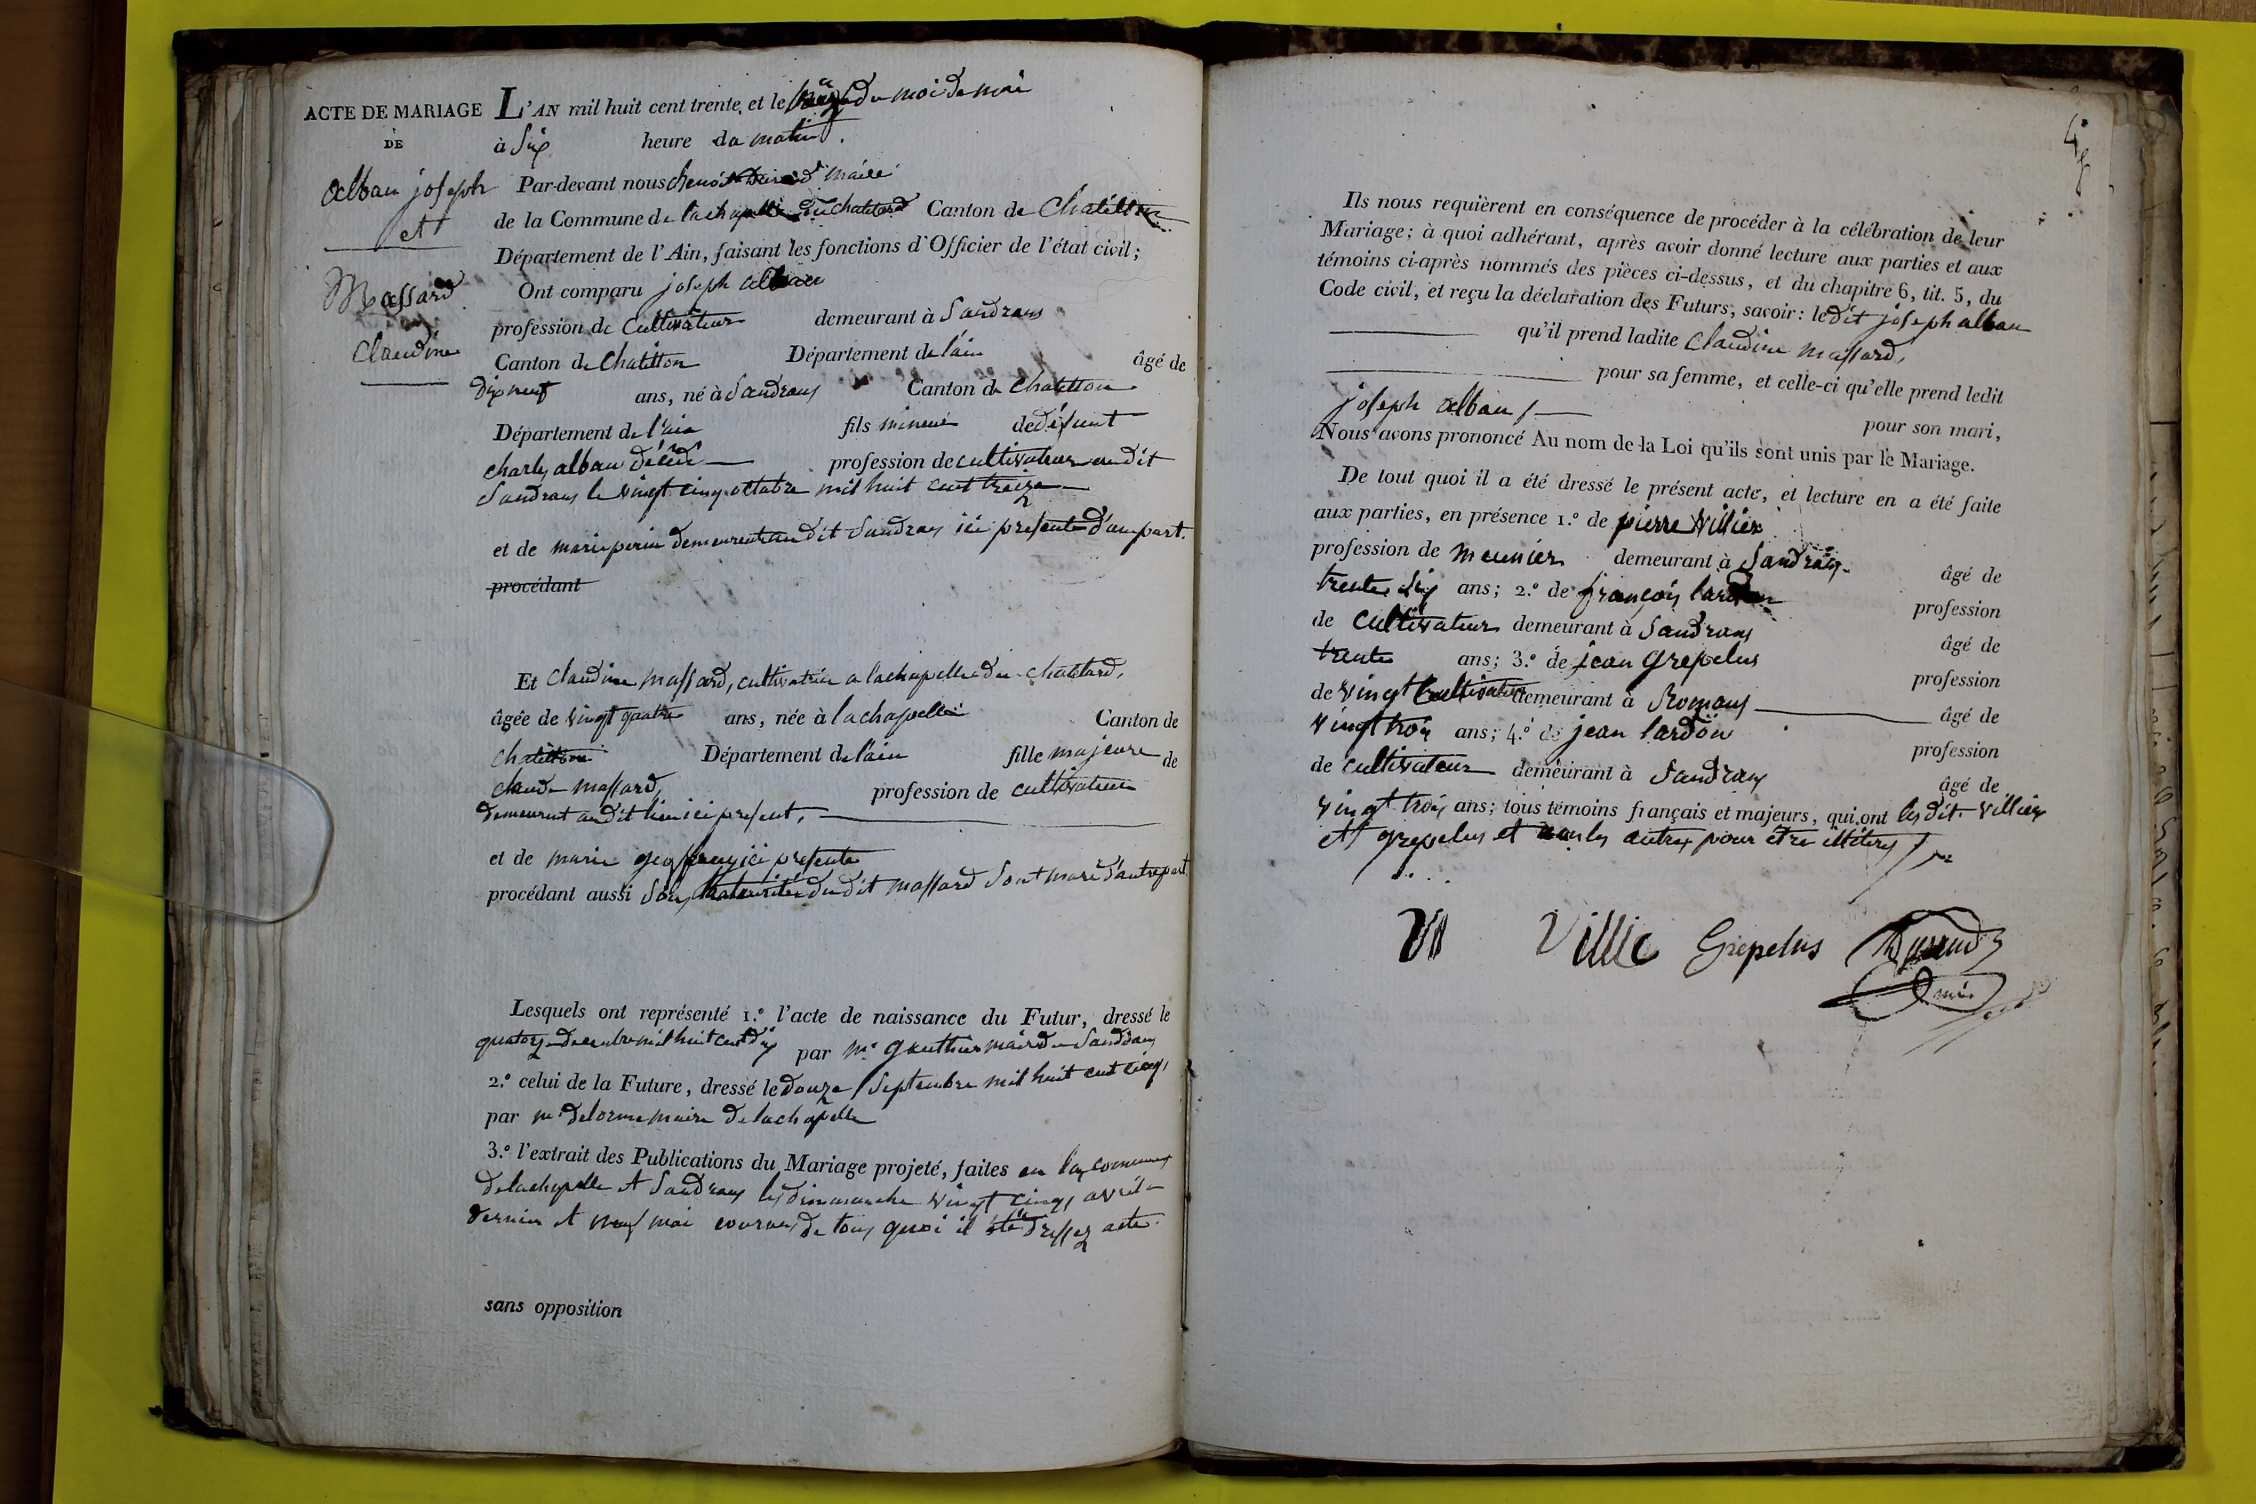 ACTE DE MARIAGE
DE
alban joseph
et
Massard
Claudine
L'AN mil huit cent trente et le du moi de mai
à Six heure da matin.
Par-devant nous maire
de la Commune de lachapelle du chatelard Canton de Chatillon
Département de l'Ain, faisant les fonctions d'Officier de l'état civil;
Ont comparu joseph alban
profession de Cultivateur demeurant à Sandrans
Canton de Chatillon Département de l'ain âgé de
dix neuf ans, né à Sandrans Canton de chatillon
Département de l'ain fils mineur de défunt
charles alban décédé profession de cultivateur au dit
Sandrans le vingt cinq octobre mil huit cent treize
et de marie perin demeurent au dit Sandrans ici presente d'une part.
procédant
Et Claudine massard, cultivatrice a lachapelle du chatelard,
âgée de vingt quatre ans, née à lachapelle Canton de
chatillon Département de l'ain fille majeure de
claude massard, profession de cultivateur
demeurent au dit lieu ici present,
et de marie geoffray ici presente
procédant aussi Sous du dit massard Son d'autre part
Lesquels ont représenté 1.º l'acte de naissance du Futur, dressé le
quatorze decembre mil huit cent dix par mr gauthier maire de Sandrans
2.º celui de la Future, dressé le douze Septembre mil huit cent cinq,
par mr delorme maire de lachapelle
3.º l'extrait des Publications du Mariage projeté, faites en les communes
de lachapelle et Sandrans les dimanche vingt cinq avril
dernier et neuf mai courant de tous quoi il été dressez acte.
sans opposition
Ils nous requièrent en conséquence de procéder à la célébration de leur
Mariage; à quoi adhérant, après avoir donné lecture aux parties et aux
témoins ci-après nommés des pièces ci-dessus, et du chapitre 6, tit. 5, du
Code civil, et reçu la déclaration des Futurs, savoir: le dit joseph alban
qu'il prend ladite Claudine massard,
pour sa femme, et celle-ci qu'elle prend ledit
joseph alban pour son mari,
Nous avons prononcé Au nom de la Loi qu'ils sont unis par le Mariage.
De tout quoi il a été dressé le présent acte, et lecture en a été faite
aux parties, en présence 1.º de pierre Villier
profession de meunier demeurant à Sandrans âgé de
trente six ans; 2.º de françois lardon profession
de cultivateur demeurant à Sandrans âgé de
trente ans; 3.º de jean Grepelus profession
de vingt Cultivateur demeurant à Romans âgé de
vingt trois ans; 4.º de jean lardon profession
de cultivateur demeurant à Sandrans âgé de
vingt trois ans; tous témoins français et majeurs, qui ont les dit villier
et grepelus et non les autres pour etre illiterés
Vi Villie Grepelus